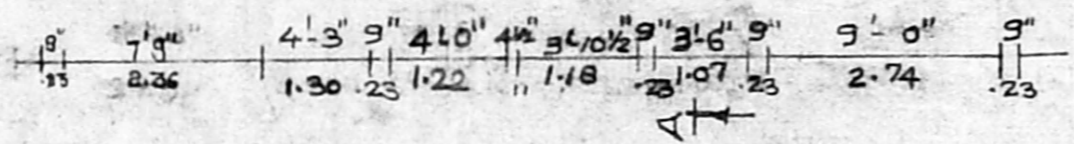 9" 7'9" 4'-3" 9" 4'0" 4½" 3'10½" 9" 3'-6" 9" 9'-0" 9"
.23 2.36 1.30 .23 1.22 11 1.18 .23 1.07 .23 2.74 .23
A